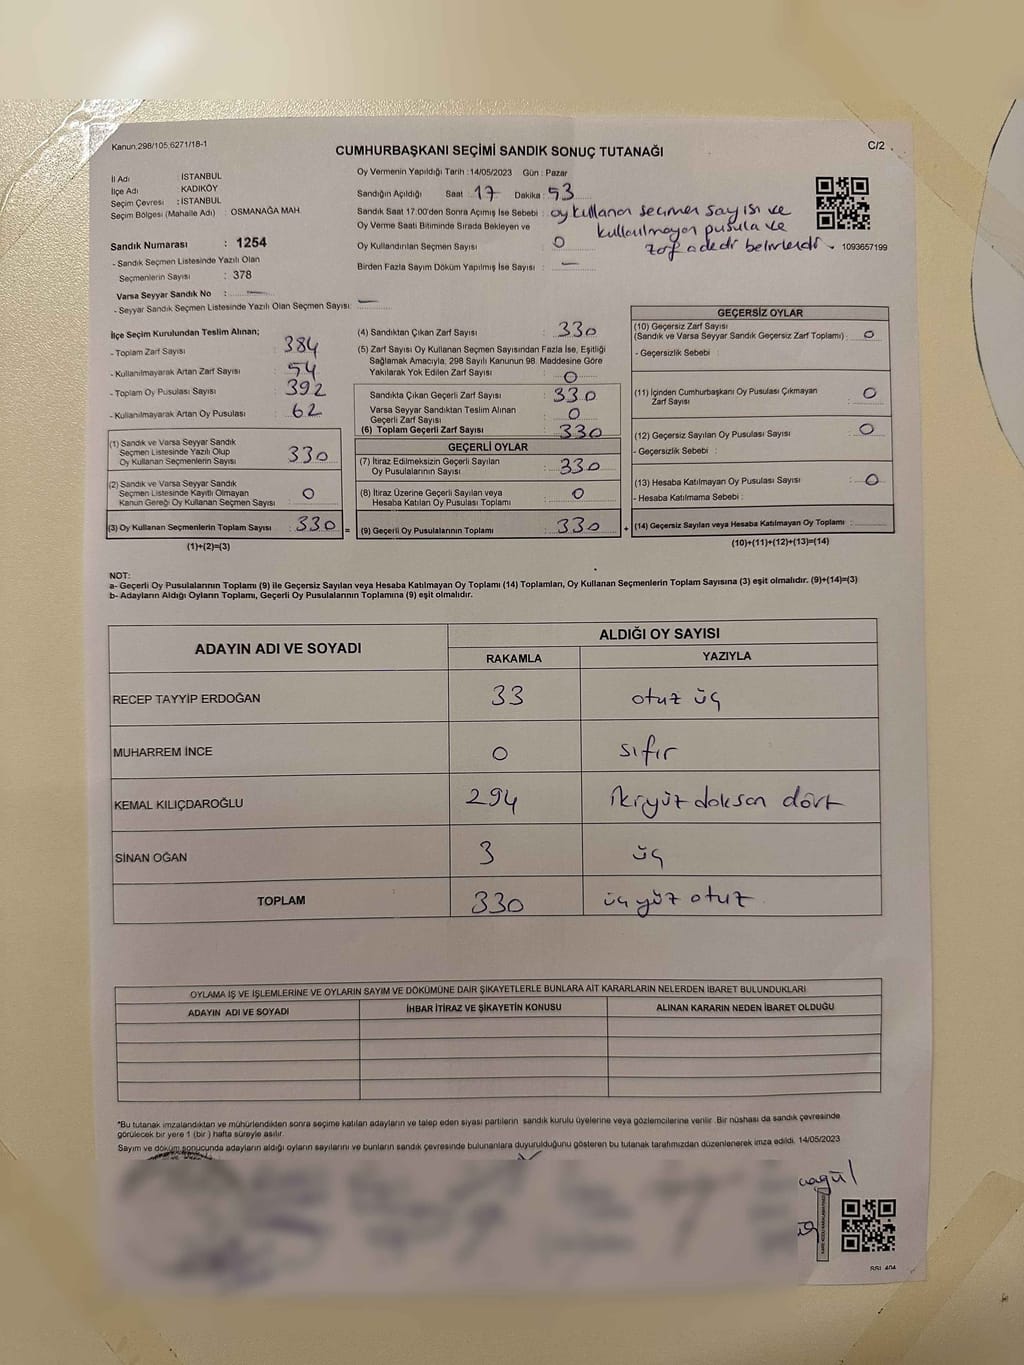 Kanun.298/105.6271/18-1
C/2
CUMHURBAŞKANI SEÇİMİ SANDIK SONUÇ TUTANAĞI
İl Adı : İSTANBUL
İlçe Adı : KADIKÖY
Seçim Çevresi : İSTANBUL
Seçim Bölgesi (Mahalle Adı) : OSMANAĞA MAH.
Sandık Numarası : 1254
- Sandık Seçmen Listesinde Yazılı Olan
Seçmenlerin Sayısı : 378
Varsa Seyyar Sandık No :
- Seyyar Sandık Seçmen Listesinde Yazılı Olan Seçmen Sayısı:
Oy Vermenin Yapıldığı Tarih :14/05/2023 Gün : Pazar
Sandığın Açıldığı Saat : 17 Dakika : 53
Sandık Saat 17:00'den Sonra Açılmış İse Sebebi : oy kullanan seçmen sayısı ve
kullanılmayan pusula ve
zarf adedi belirlendi
Oy Verme Saati Bitiminde Sırada Bekleyen ve
Oy Kullandırılan Seçmen Sayısı : 0
Birden Fazla Sayım Döküm Yapılmış İse Sayısı : —
1093657199
İlçe Seçim Kurulundan Teslim Alınan;
- Toplam Zarf Sayısı : 384
- Kullanılmayarak Artan Zarf Sayısı : 54
- Toplam Oy Pusulası Sayısı : 392
- Kullanılmayarak Artan Oy Pusulası : 62
(1) Sandık ve Varsa Seyyar Sandık
Seçmen Listesinde Yazılı Olup
Oy Kullanan Seçmenlerin Sayısı : 330
(2) Sandık ve Varsa Seyyar Sandık
Seçmen Listesinde Kayıtlı Olmayan
Kanun Gereği Oy Kullanan Seçmen Sayısı : 0
(3) Oy Kullanan Seçmenlerin Toplam Sayısı : 330 =
(1)+(2)=(3)
(4) Sandıktan Çıkan Zarf Sayısı : 330
(5) Zarf Sayısı Oy Kullanan Seçmen Sayısından Fazla İse, Eşitliği
Sağlamak Amacıyla; 298 Sayılı Kanunun 98. Maddesine Göre
Yakılarak Yok Edilen Zarf Sayısı : 0
Sandıkta Çıkan Geçerli Zarf Sayısı : 330
Varsa Seyyar Sandıktan Teslim Alınan
Geçerli Zarf Sayısı : 0
(6) Toplam Geçerli Zarf Sayısı : 330
GEÇERLİ OYLAR
(7) İtiraz Edilmeksizin Geçerli Sayılan
Oy Pusulalarının Sayısı : 330
(8) İtiraz Üzerine Geçerli Sayılan veya
Hesaba Katılan Oy Pusulası Toplamı : 0
(9) Geçerli Oy Pusulalarının Toplamı : 330 +
GEÇERSİZ OYLAR
(10) Geçersiz Zarf Sayısı
(Sandık ve Varsa Seyyar Sandık Geçersiz Zarf Toplamı) : 0
- Geçersizlik Sebebi :
(11) İçinden Cumhurbaşkanı Oy Pusulası Çıkmayan
Zarf Sayısı : 0
(12) Geçersiz Sayılan Oy Pusulası Sayısı : 0
- Geçersizlik Sebebi :
(13) Hesaba Katılmayan Oy Pusulası Sayısı : 0
- Hesaba Katılmama Sebebi :
(14) Geçersiz Sayılan veya Hesaba Katılmayan Oy Toplamı :
(10)+(11)+(12)+(13)=(14)
NOT:
a- Geçerli Oy Pusulalarının Toplamı (9) ile Geçersiz Sayılan veya Hesaba Katılmayan Oy Toplamı (14) Toplamları, Oy Kullanan Seçmenlerin Toplam Sayısına (3) eşit olmalıdır. (9)+(14)=(3)
b- Adayların Aldığı Oyların Toplamı, Geçerli Oy Pusulalarının Toplamına (9) eşit olmalıdır.
ADAYIN ADI VE SOYADI
ALDIĞI OY SAYISI
RAKAMLA YAZIYLA
RECEP TAYYİP ERDOĞAN 33 otuz üç
MUHARREM İNCE 0 sıfır
KEMAL KILIÇDAROĞLU 294 ikiyüz doksan dört
SİNAN OĞAN 3 üç
TOPLAM 330 üçyüz otuz
OYLAMA İŞ VE İŞLEMLERİNE VE OYLARIN SAYIM VE DÖKÜMÜNE DAİR ŞİKAYETLERLE BUNLARA AİT KARARLARIN NELERDEN İBARET BULUNDUKLARI
ADAYIN ADI VE SOYADI İHBAR İTİRAZ VE ŞİKAYETİN KONUSU ALINAN KARARIN NEDEN İBARET OLDUĞU
*Bu tutanak imzalandıktan ve mühürlendikten sonra seçime katılan adayların ve talep eden siyasi partilerin sandık kurulu üyelerine veya gözlemcilerine verilir. Bir nüshası da sandık çevresinde
görülecek bir yere 1 (bir) hafta süreyle asılır.
Sayım ve döküm sonucunda adayların aldığı oyların sayılarını ve bunların sandık çevresinde bulunanlara duyurulduğunu gösteren bu tutanak tarafımızdan düzenlenerek imza edildi. 14/05/2023